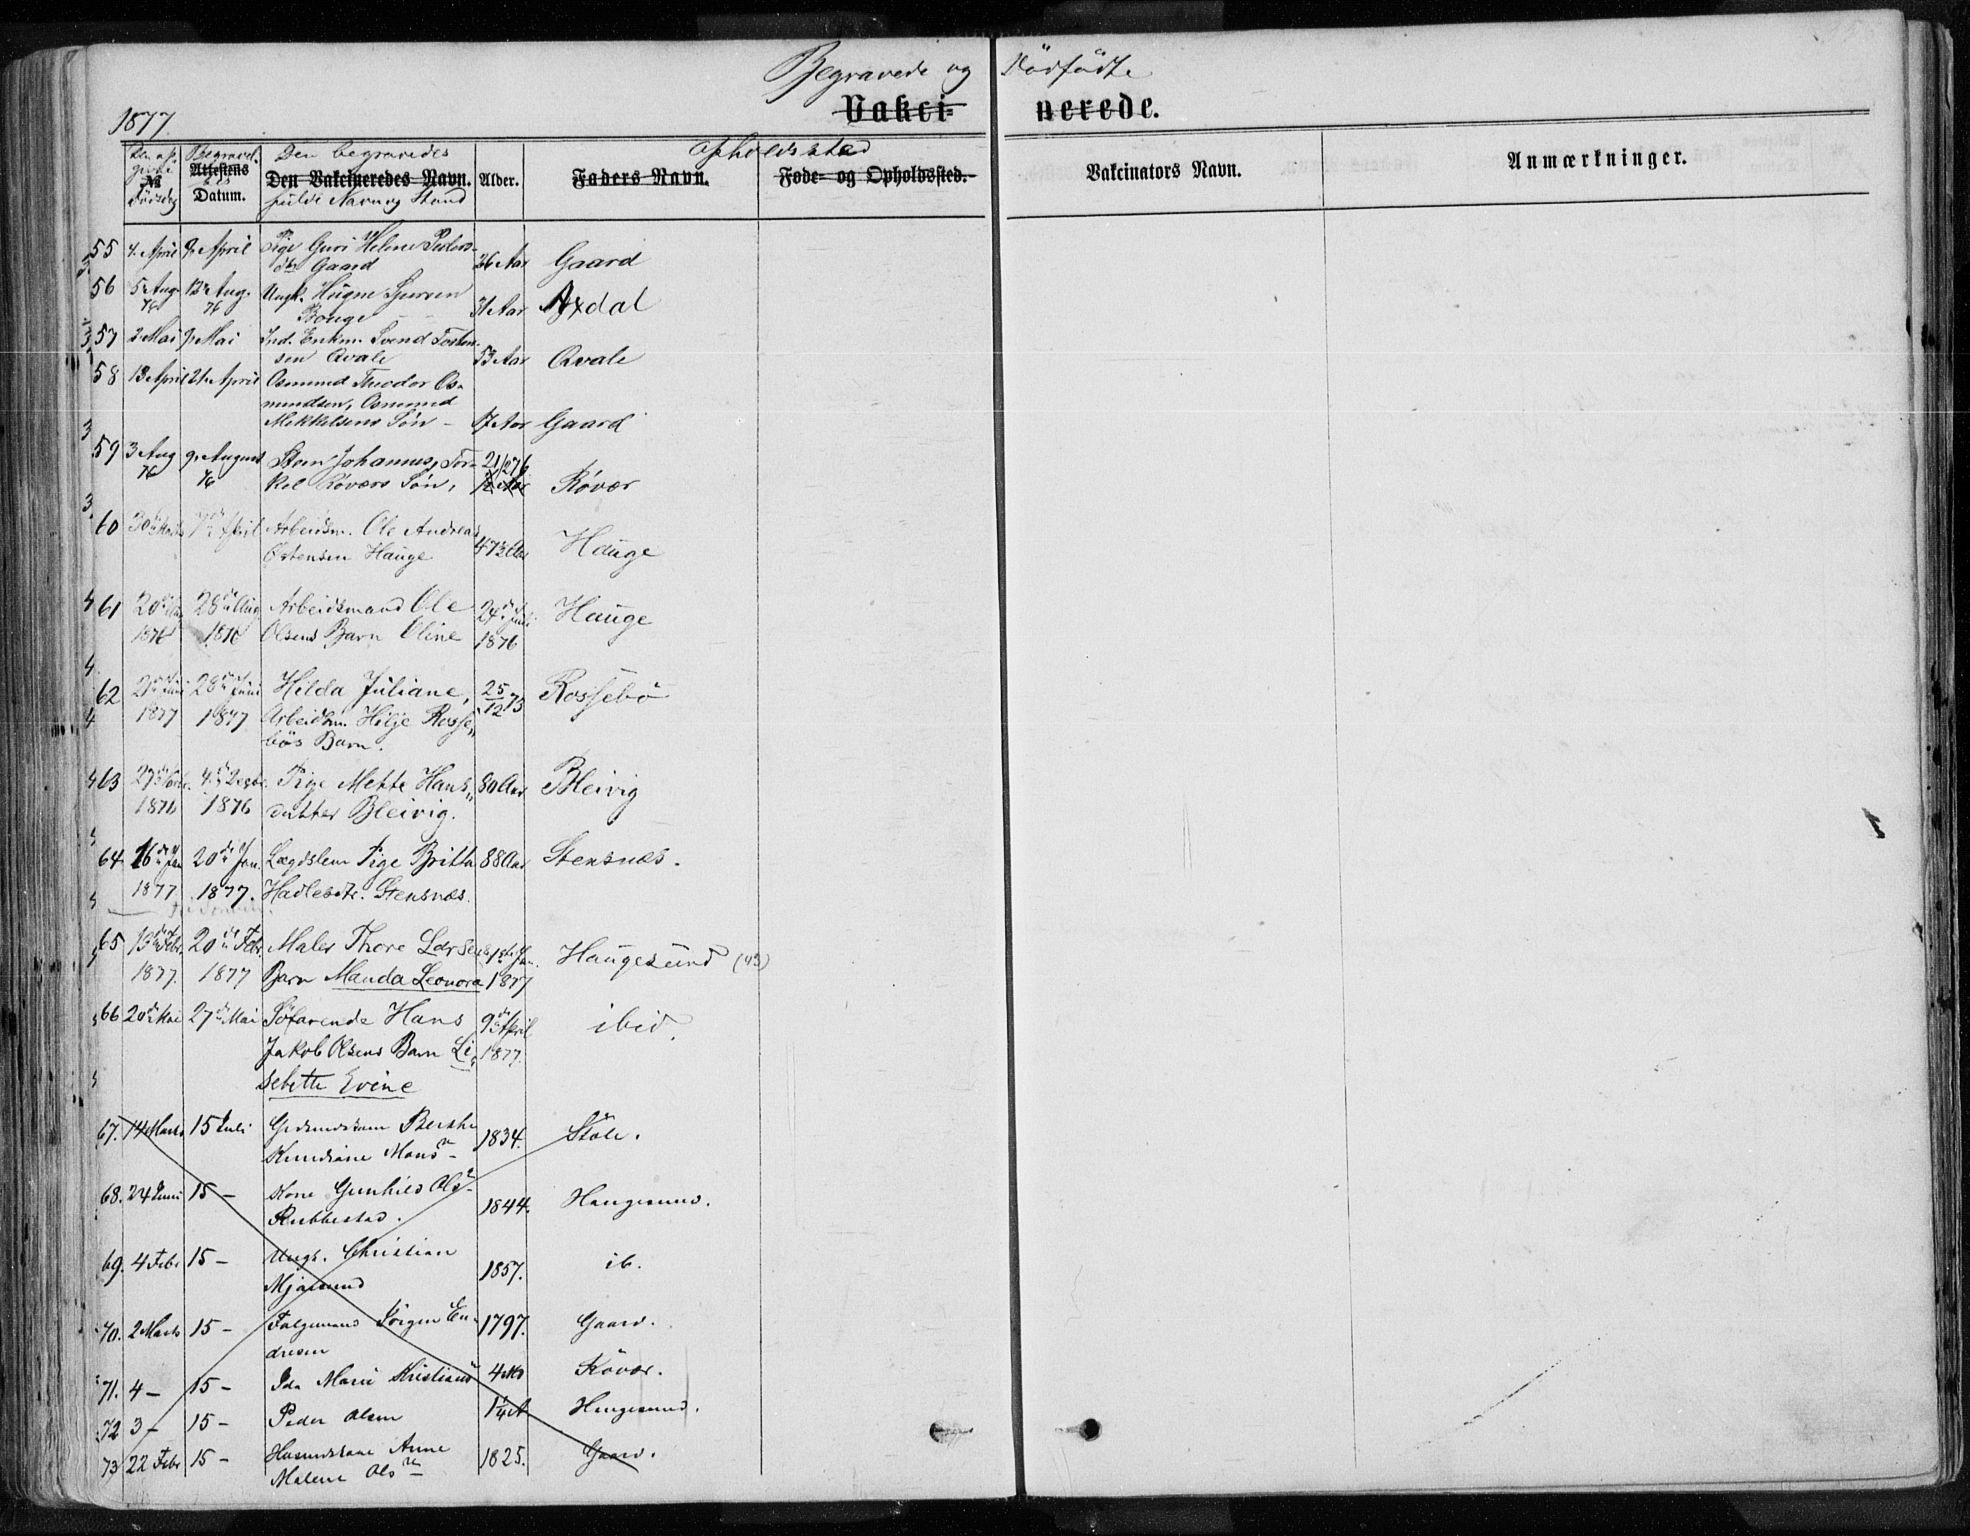 Begravede og Dödfödte
1877
Vakci- nerede.
№ Attestens Datum. Den Vakcineredes Navn. Alder. Faders Navn. Føde- og Opholdssted. Vakcinators Navn. Anmærkninger.
Den begravedes
fulde Navn og Stand
Opholdssted
55 4. April 9. April Pige Guri Helene
Gaard 26 Aar Gaard
56 5 Aug. 76 12 Aug. 76 Ungk.
31 Aar Axdal
57 2 Mai 9 Mai Ind. Enkm. Svend Torsten-
sen Qvale 53 Aar Qvale
58 13 April 21 April Osmund Theodor Os-
mundsen, Osmund
Mikkelsens Søn - 17 Aar Gaard
59 3 Aug 76 9. August 76 Sten Johannes, Tor-
kel Røværs Søn, 21/2 76 Røvær
60 30 Marts 7de April Arbeidsm. Ole Andreas
Östensen Hauge 47½ Aar Hauge
61 20de 1876 28de Aug 1876 Arbeidsmand Ole
Olsens Barn Oline 24de Juni 1876 Hauge
62 21de Juni 1877 28de Juni 1877 Hilda Juliane,
Arbeidsm. Hilje Rosse„
bös Barn. 25/12 73 Rossebö
63 27de 1876 4de Decbr. 1876 Pige Mette Hans„
datter Bleivig. 80 Aar Bleivig
64 16de Jan 1877 20de Jan. 1877. Lægdslem Pige Britta
Stensnæs. 88 Aar Stensnæs.
65 13de Febr 1877. 20de Febr. 1877 Maler Thore Larsens
Barn Manda Leonora 1ste Jan. 1877 Haugesund (43)
66 20de Mai 27de Mai Söfarende Hans
Jakob Olsens Barn Li„
sebette Evine 9de April 1877. ibid.
67. 14 Marts 15 Juli Berthe
Mons 1834. Stole.
68. 24 Juni 15 - Kone Gunhild Ols
Rubbestad. 1844. Haugesund.
69. 4 Febr 15 - Ungk. Christian
Mjösund 1857. ib.
70. 2 Marts 15 - Jörgen En-
dresen 1797. Gaard.
71. 4 - 15 - Ida Marie Kristians 4 M Røvær.
72 3 - 15 - Peder Olsen 1¼ A Haugesund.
73 22 Febr 15 - Husmandskone Anne
Malene Ols 1825. Gaard.